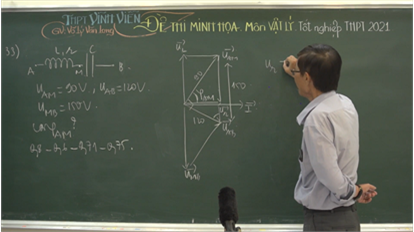 THPT VĨNH VIỄN
GV: Võ Lý Văn Long
ĐỀ THI MINH HỌA. Môn VẬT LÝ. Tốt nghiệp THPT 2021
33)
L, r
C
A
M
B.
U_AM = 90V, U_AB = 120V
U_MB = 150V.
cosφ_AM?
0,8 - 0,6 - 0,71 - 0,75.
90
φ_AM
150
120
U_MB
U_r